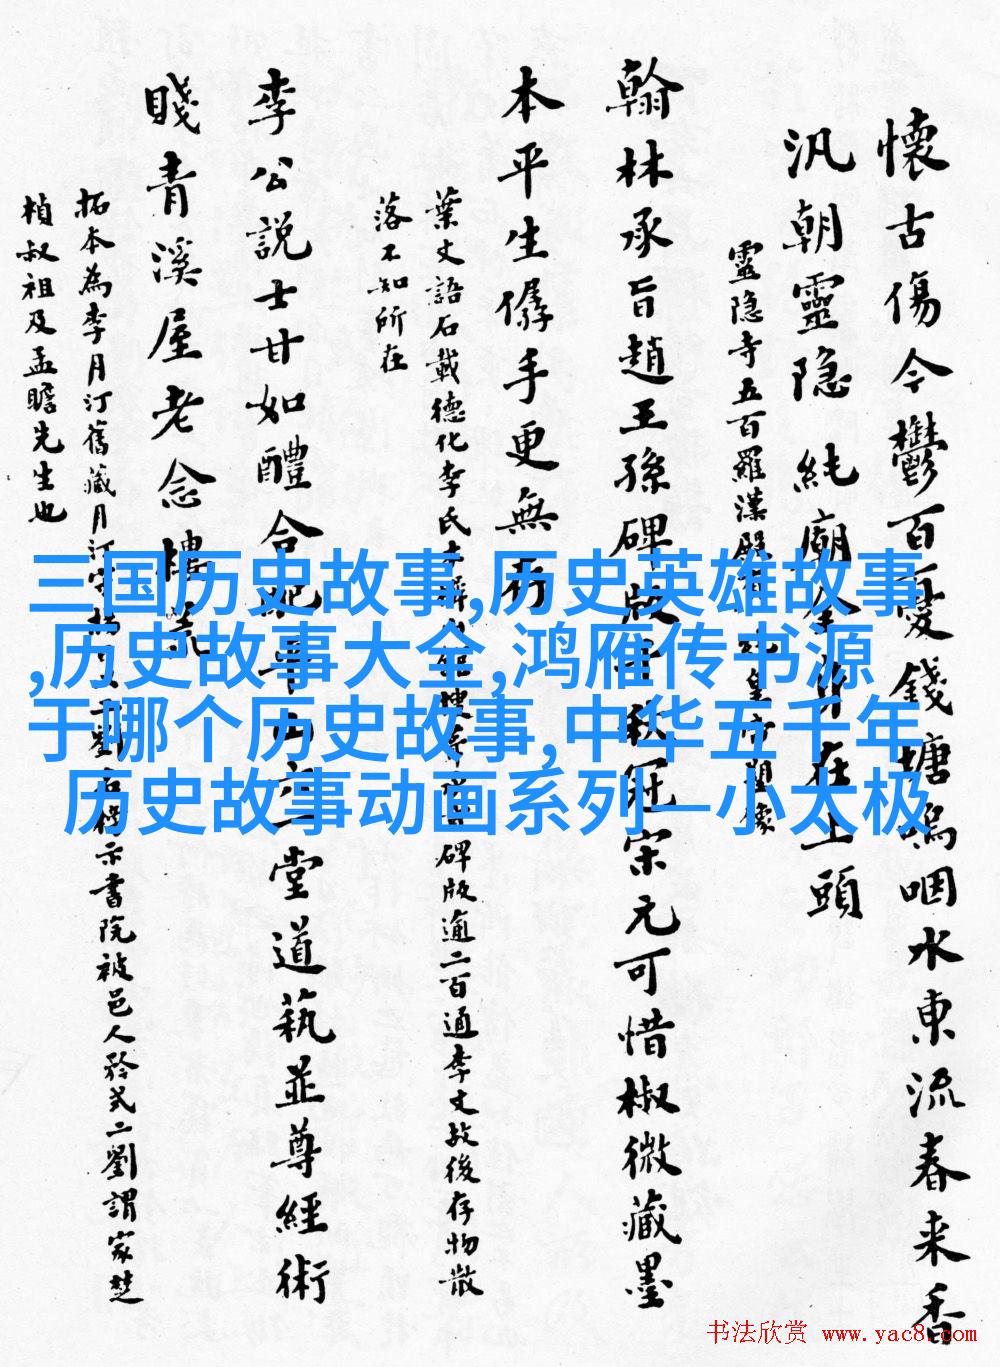 懷古傷今鬱百憂錢塘嗚咽水東流春来香
汎朝靈隐純廟金身在上頭
靈隐寺五百羅漢殿有純皇帝塑像
翰林承旨趙王孫碑版千秋冠宋元可惜椒微藏墨
本平生儔手更無存
葉文語石載德化李氏
碑版逾二百通李文故後存物散
落不知所在
李公説士甘如醴合肥
堂道藝並尊經術
賤青溪屋老念樓荒
拓本為李月汀舊藏月汀
示書院被邑人矜式二劉謂家楚
楨叔祖及孟瞻先生也
三国历史故事,历史英雄故事
,历史故事大全,鸿雁传书源
于哪个历史故事,中华五千年
历史故事动画系列—小太极
书法欣赏 www.yac8.com